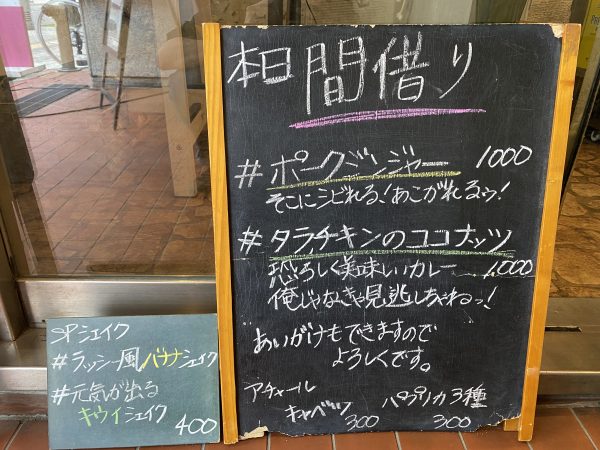 本日間借り
#ポークジンジャー 1000
そこにシビれる!あこがれるゥ!
#タラチキンのココナッツ
恐ろしく美味しいカレー 1000
俺じゃなきゃ見逃しちゃねっ!
あいがけもできますので
よろしくです。
アチャール
キャベツ 300
パプリカ3種 300
SPシェイク
#ラッシー風バナナシェイク
#元気が出る
キウイシェイク 400